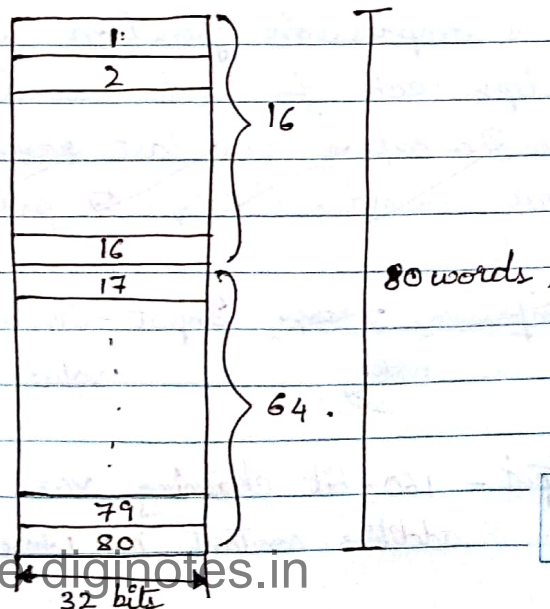 1
2
16
16
80 words
17
64 .
79
80
diginotes.in
32 bits